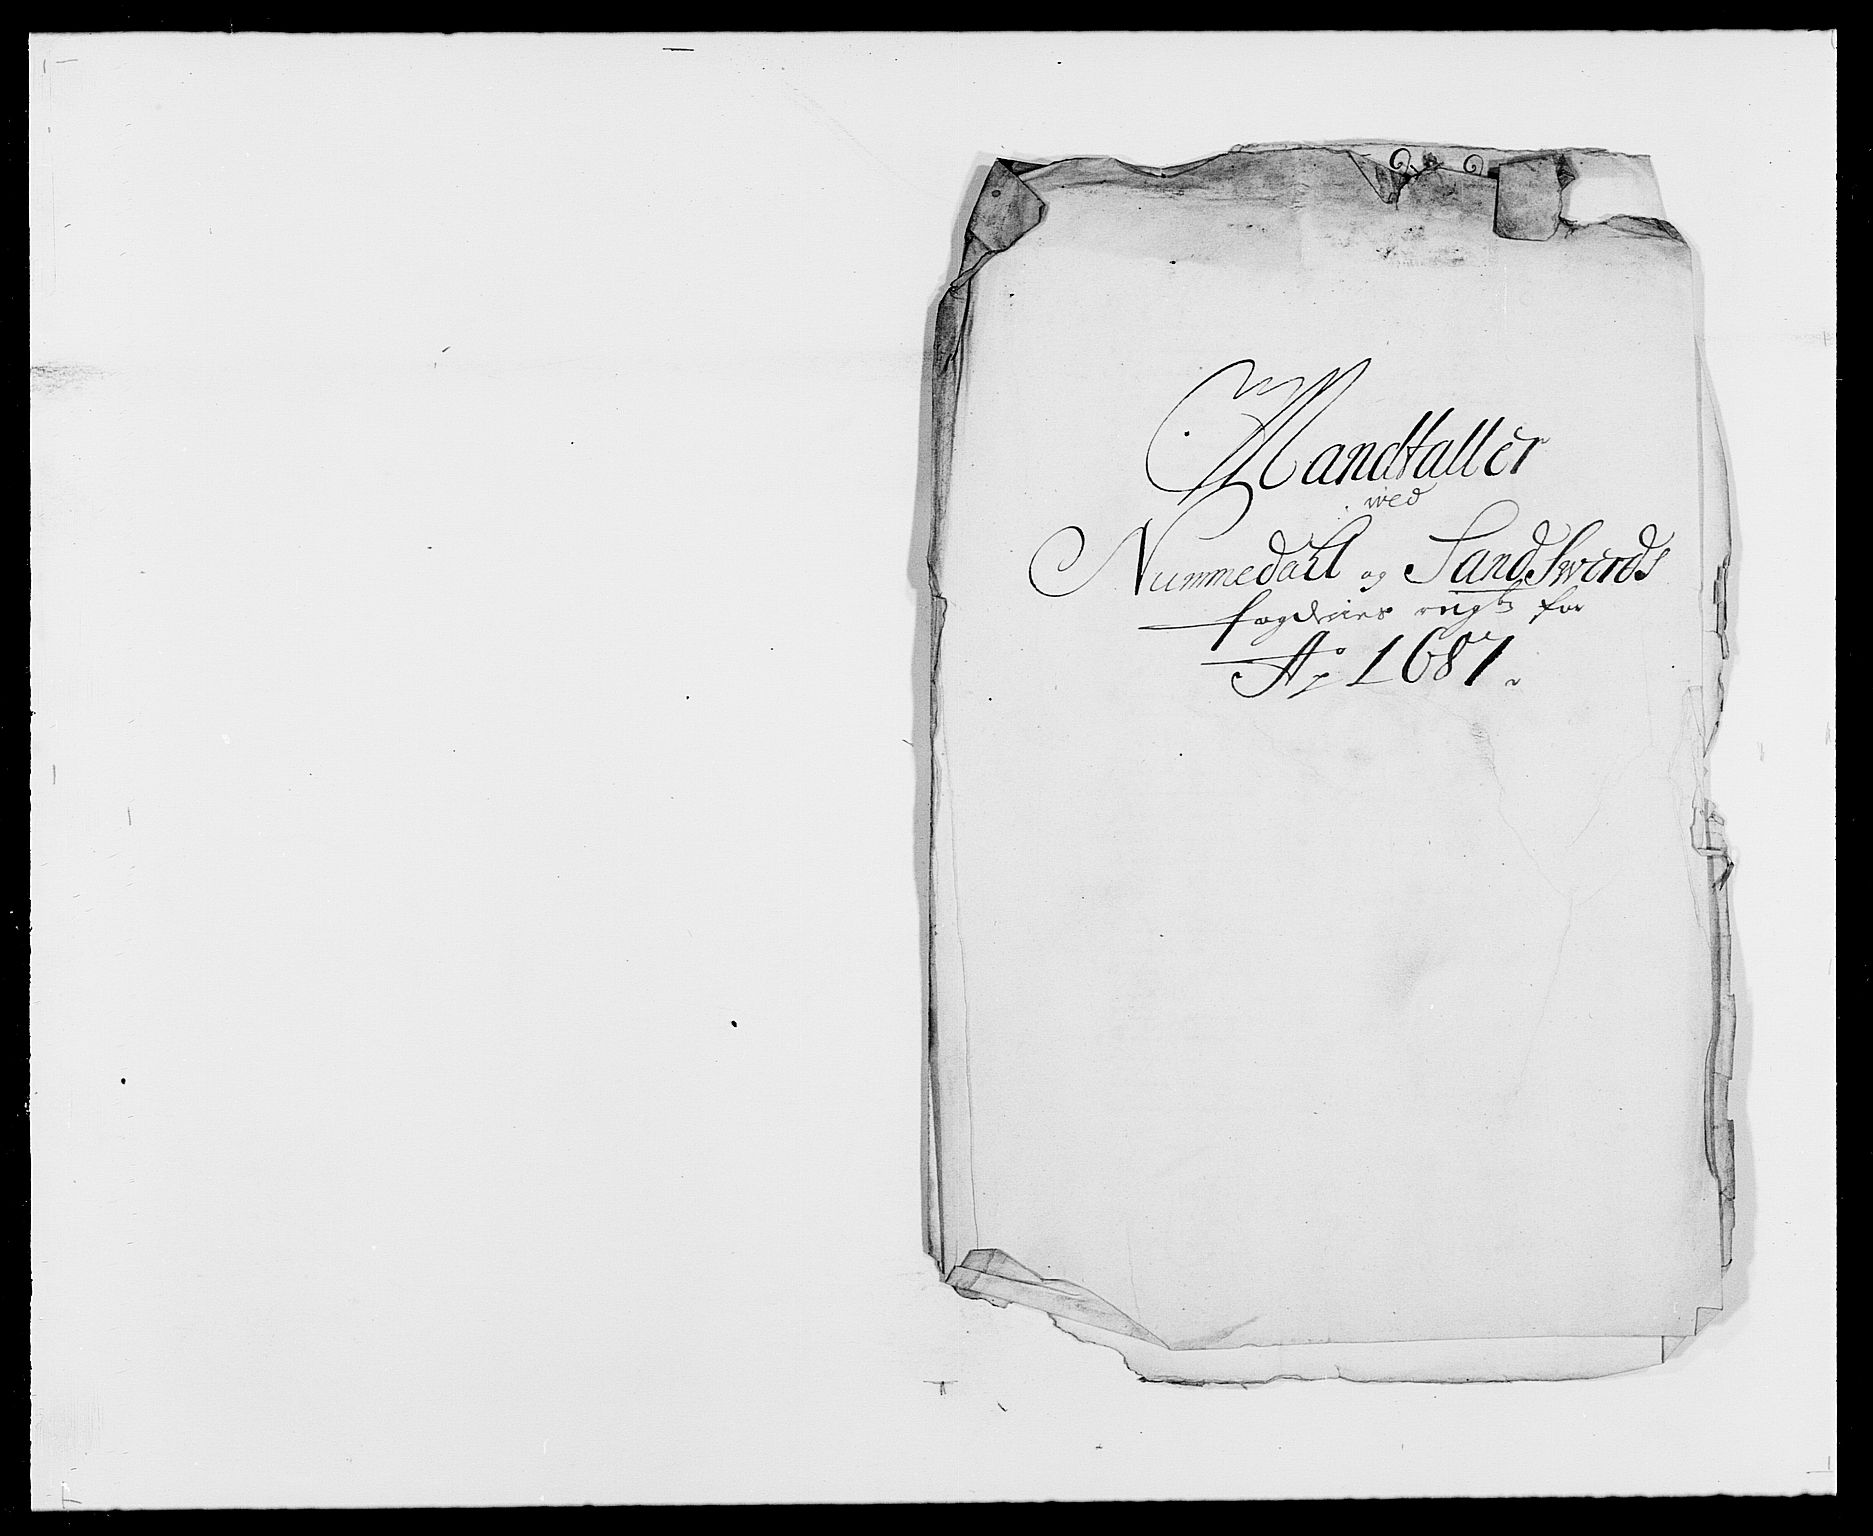 Mandtaller
wed
Nummedahl og Sandswerds
fogderies for
Ao 1687